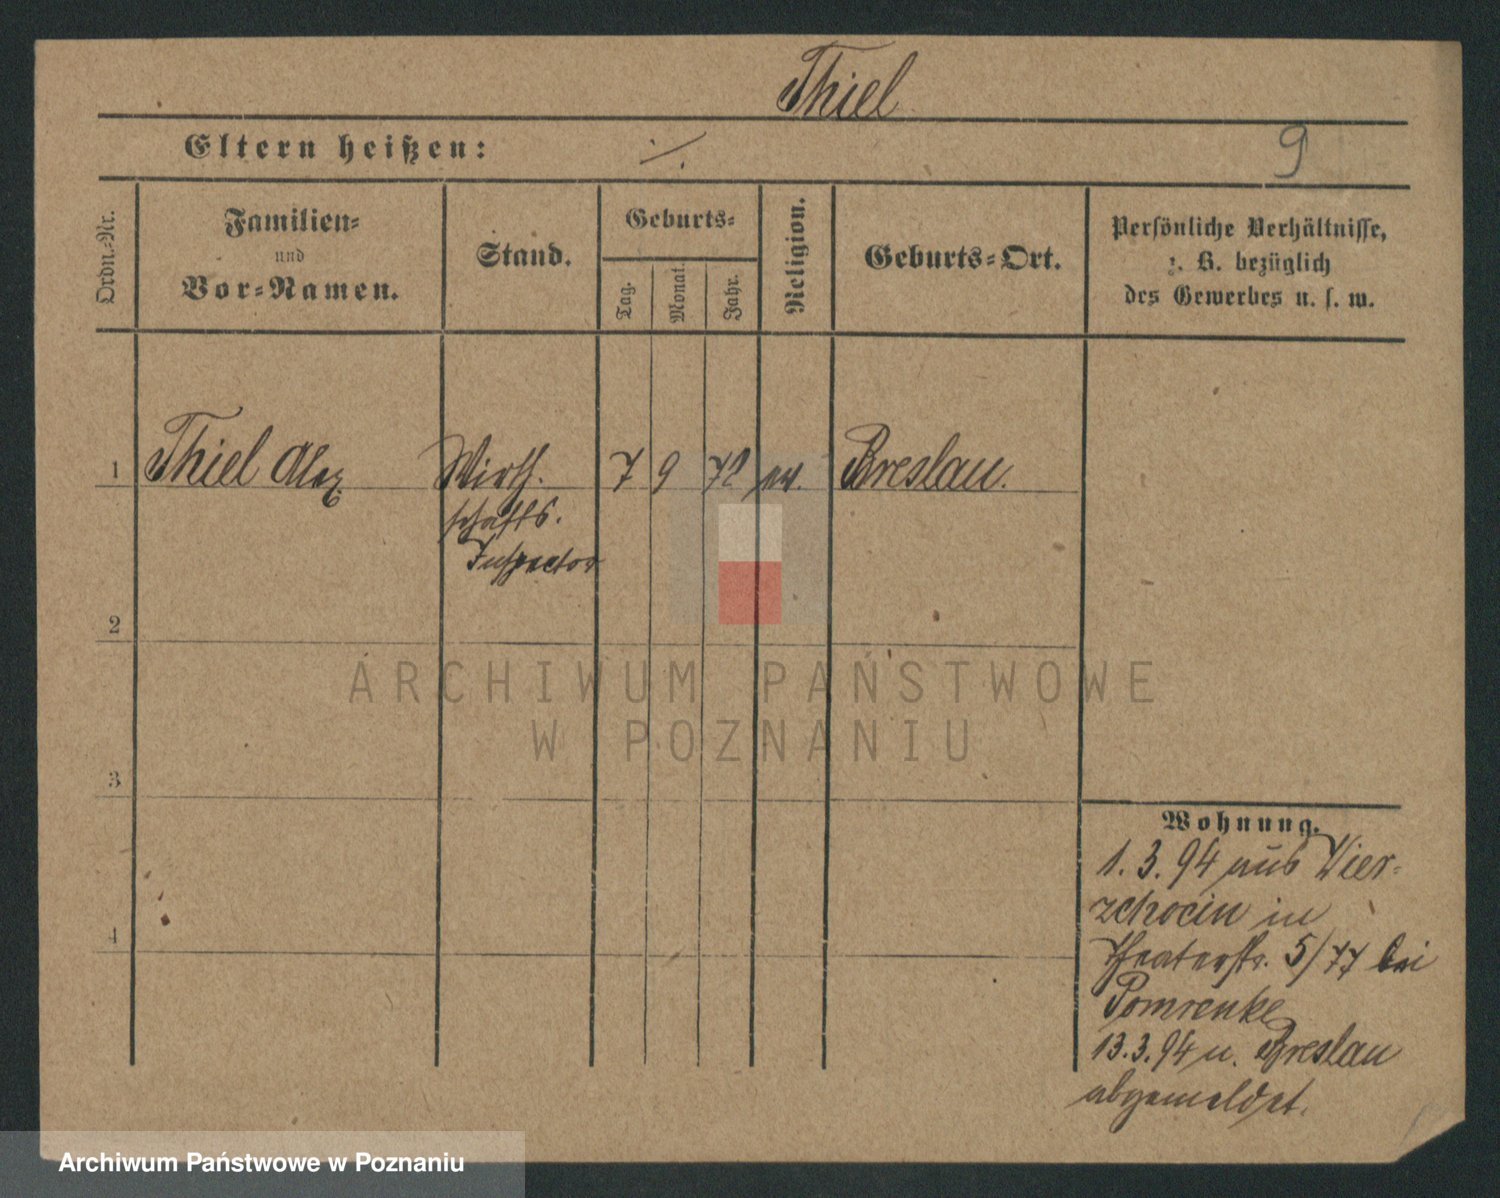 Thiel
Eltern heißen: ·/.
9
Ordn.-Nr.
Familien-
und
Vor-Namen.
Stand.
Geburts-
Tag.
Monat.
Jahr.
Religion.
Geburts-Ort.
Persönliche Verhältnisse,
z. B. bezüglich
des Gewerbes u. s. w.
1 Thiel Alex Wirth- 7 9 72 ev. Breslau.
schafts-
Inspector
2
ARCHIWUM PAŃSTWOWE
W POZNANIU
3
Wohnung.
1.3.94 aus Wier-
zchocin in
Theaterstr. 5/77 bei
Pomrenke
13.3.94 n. Breslau
abgemeldet.
4
Archiwum Państwowe w Poznaniu